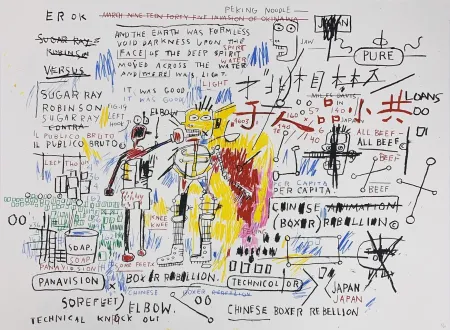 PEKING NOODLE—
MARCH NINETEEN FORTY FIVE INVASION OF OKINAWA
JAPAN
JAW
PURE
AND THE EARTH WAS FORMLESS
VOID DARKNESS UPON THE
FACE OF THE DEEP SPIRIT
SPIRIT
MOVED ACROSS THE WATER
WATER
AND THERE WAS LIGHT.
LIGHT
IT WAS GOOD
IT WAS GOOD
SUGAR RAY
ROBINSON
VERSUS
SUGAR RAY
ROBINSON
SUGAR RAY
CONTRA
IL PUBLICO BRUTO
IL PUBLICO BRUTO
LEFT
HOOK
ELBOW
MILES DAVIS
IN
JAPAN
于人品小共
LOANS
ALL BEEF—
ALL BEEF—
BEEF
BEEF
PER CAPITA
PER CAPITA.
CHINESE ANIMATION
(BOXER) REBELLION ©
KNEE
KNEE
SOAP.
SOAP
PANAVISION
SOME FEET
PANAVISION
BOXER REBELLION.
CHINESE BOXER REBELLION
TECHNICOLOR
JAPAN
JAPAN
SORE FEET
ELBOW.
TECHNICAL KNOCK OUT
CHINESE BOXER REBELLION